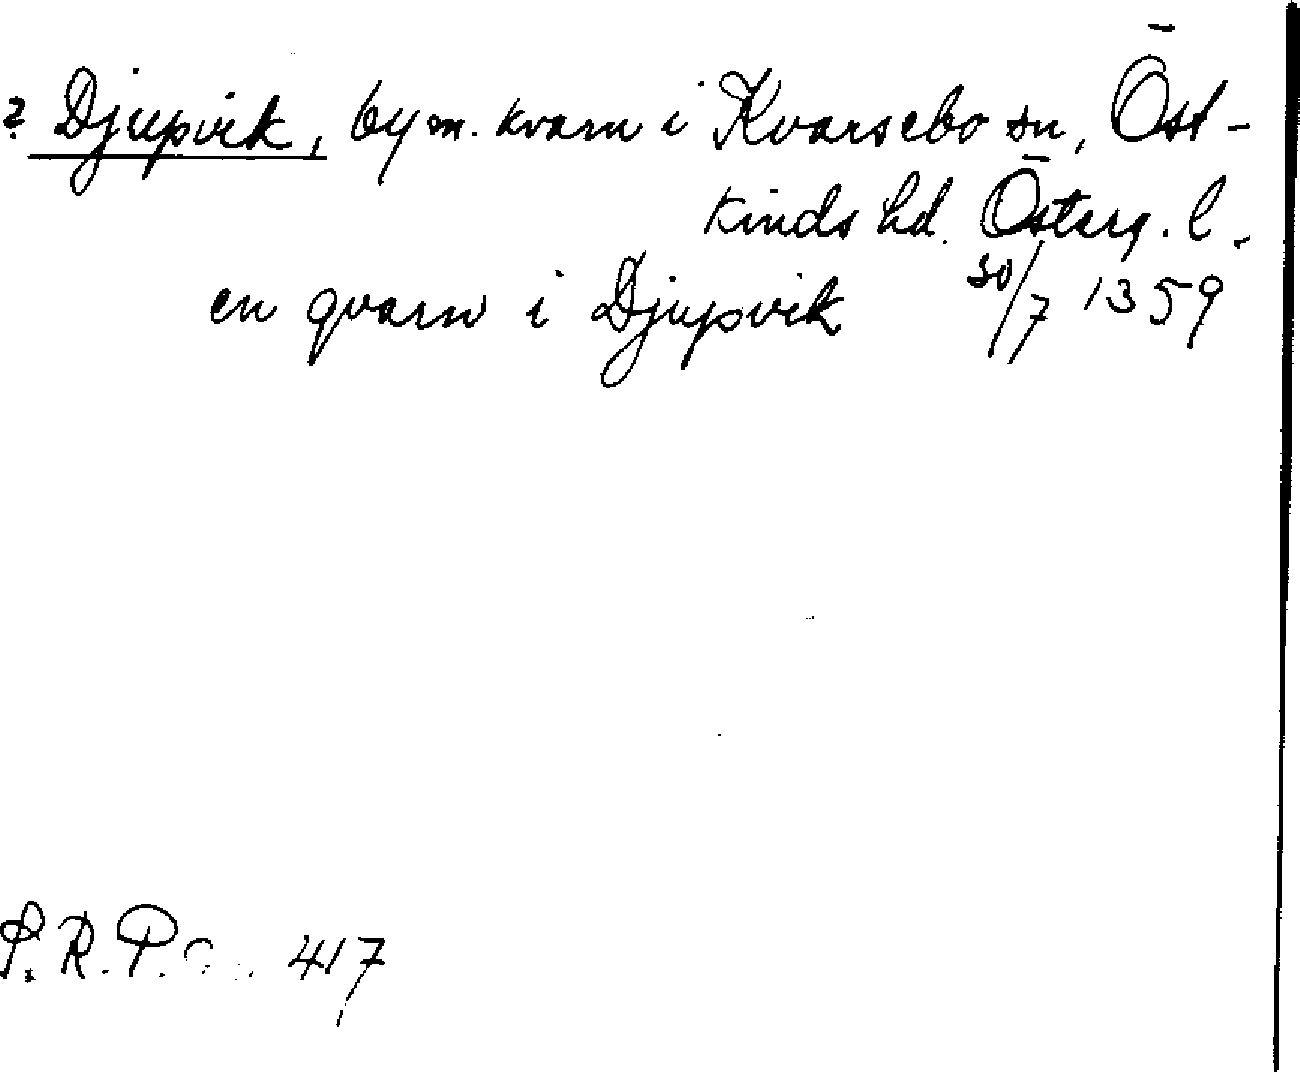 ? Djupvik, by m. kvarn i Kvarsebo sn, Öst-
kinds hd. Österg. l.
en qvarn i Djupvik 30/7 1359
S.R.P. 417